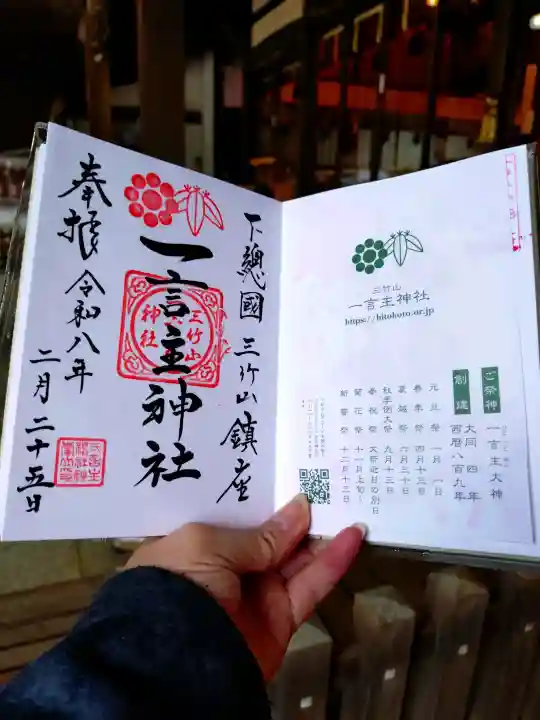 下總國 三竹山 鎮座
一言主神社
三竹山
神社
奉拝 令和八年
二月二十五日
三竹山
一言主神社
https://hitokoto.or.jp
ご祭神 一言主大神
創建 大同四年
西暦八百九年
元旦祭 一月一日
春季祭 四月十三日
夏越祭 六月三十日
秋季例大祭 九月十三日
菊花祭 十一月上旬〜
新嘗祭 十二月十二日